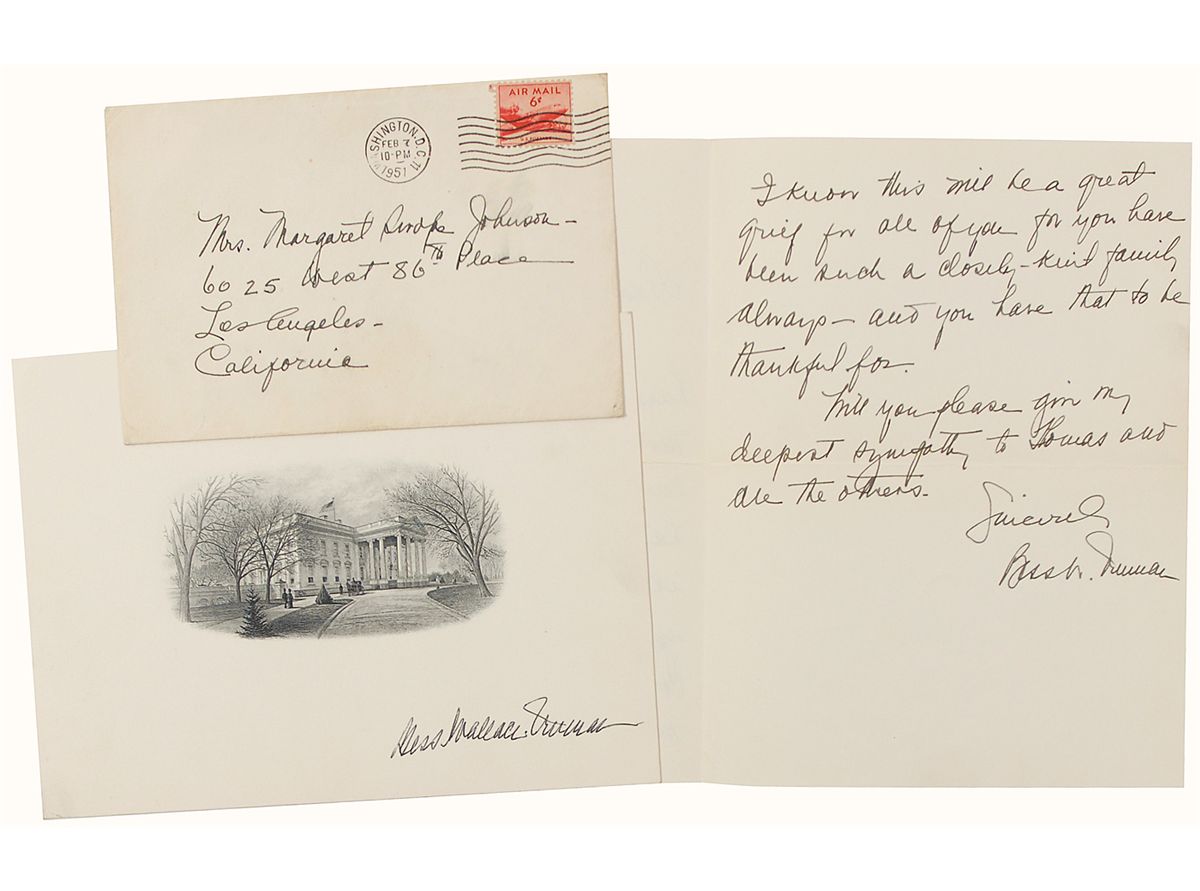 AIR MAIL
6¢
WASHINGTON, D.C.
FEB 7
10-PM
1951
Mrs. Margaret Johnson-
6025 West 86th Place
Los Angeles-
California
Bess Wallace Truman
I know this will be a great
grief for all of you for you have
been such a closely-knit family
always- and you have that to be
thankful for.
Will you please give my
deepest sympathy to Thomas and
all the others.
Sincerely
Bess W. Truman